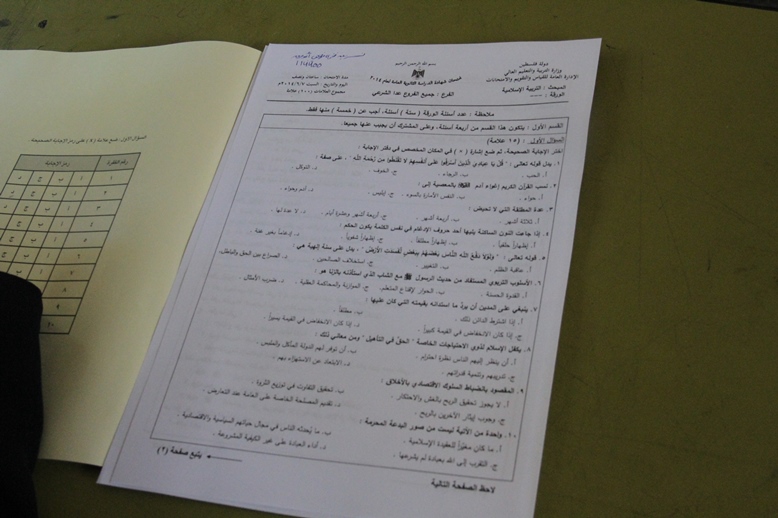 بسم الله الرحمن الرحيم
دولة فلسطين
وزارة التربية والتعليم العالي
الإدارة العامة للقياس والتقويم والامتحانات
المبحث : التربية الإسلامية
الورقة : ــــ
امتحان شهادة الدراسة الثانوية العامة لعام ٢٠١٤
الفرع : جميع الفروع عدا الشرعي
مدة الامتحان : ساعتان ونصف
مجموع العلامات (١٠٠) علامة
ملاحظة : عدد أسئلة الورقة ( ستة ) أسئلة، أجب عن ( خمسة ) منها فقط.
القسم الأول : يتكون هذا القسم من أربعة أسئلة، وعلى المشترك أن يجيب عنها جميعاً.
السؤال الأول : (١٥ علامة)
اختر الإجابة الصحيحة، ثم ضع إشارة ( × ) في المكان المخصص في دفتر الإجابة :
١. يدل قوله تعالى : " قُلْ يَا عِبَادِيَ الَّذِينَ أَسْرَفُوا عَلَى أَنْفُسِهِمْ لَا تَقْنَطُوا مِنْ رَحْمَةِ اللَّهِ " ، على صفة :
أ. الحب . ب. الرجاء . ج. الخوف . د. التوكل .
٢. نسب القرآن الكريم إغواء آدم بالمعصية إلى :
أ. حواء . ب. النفس الأمارة بالسوء . ج. إبليس . د. آدم وحواء .
٣. عدة المطلقة التي لا تحيض :
أ. ثلاثة أشهر . ب. أربعة أشهر . ج. أربعة أشهر وعشرة أيام . د. لا عدة لها .
٤. إذا جاءت النون الساكنة يليها أحد حروف الإدغام في نفس الكلمة يكون الحكم :
أ. إظهاراً حلقياً . ب. إظهاراً مطلقاً . ج. إظهاراً شفوياً . د. إدغاماً بغير غنة .
٥. قوله تعالى : " وَلَوْلَا دَفْعُ اللَّهِ النَّاسَ بَعْضَهُمْ بِبَعْضٍ لَفَسَدَتِ الْأَرْضُ " ، يدل على سنة إلهية هي :
أ. عاقبة الظلم . ب. التغيير . ج. استخلاف الصالحين . د. الصراع بين الحق والباطل.
٦. الأسلوب التربوي المستفاد من حديث الرسول ﷺ مع الشاب الذي استأذنه بالزنا هو :
أ. القدوة الحسنة . ب. الحوار لإقناع المتعلم . ج. الموازنة والمحاكمة العقلية . د. ضرب الأمثال .
٧. ينبغي على المدين أن يرد ما استدانه بقيمته التي كان عليها :
أ. إذا اشترط الدائن ذلك . ب. مطلقاً .
ج. إذا كان الانخفاض في القيمة كبيراً . د. إذا كان الانخفاض في القيمة يسيراً .
٨. يكفل الإسلام لذوي الاحتياجات الخاصة " الحق في التأهيل " ومن معاني ذلك :
أ. أن ينظر إليهم الناس نظرة احترام . ب. أن توفر لهم الدولة المأكل والملبس .
ج. تدريبهم وتنمية قدراتهم . د. الابتعاد عن الاستهزاء بهم .
٩. المقصود بانضباط السلوك الاقتصادي بالأخلاق :
أ. لا يجوز تحقيق الربح بالغش والاحتكار . ب. تحقيق التفاوت في توزيع الثروة .
ج. وجوب إيثار الآخرين بالربح . د. تقديم المصلحة الخاصة على العامة عند التعارض .
١٠. واحدة من الآتية ليست من صور البدعة المحرمة :
أ. ما كان مغيّراً للعقيدة الإسلامية . ب. ما يُحدثه الناس في مجال حياتهم السياسية والاقتصادية .
ج. التقرب إلى الله بعبادة لم يشرعها . د. أداء العبادة على غير الكيفية المشروعة .
يتبع صفحة (٢)
لاحظ الصفحة التالية
السؤال الأول: ضع علامة (×) على رمز الإجابة الصحيحة.
رقم الفقرة رمز الإجابة
١ أ ب ج د
٢ أ ب ج د
٣ أ ب ج د
٤ أ ب ج د
٥ أ ب ج د
٦ أ ب ج د
٧ أ ب ج د
٨
٩
١٠